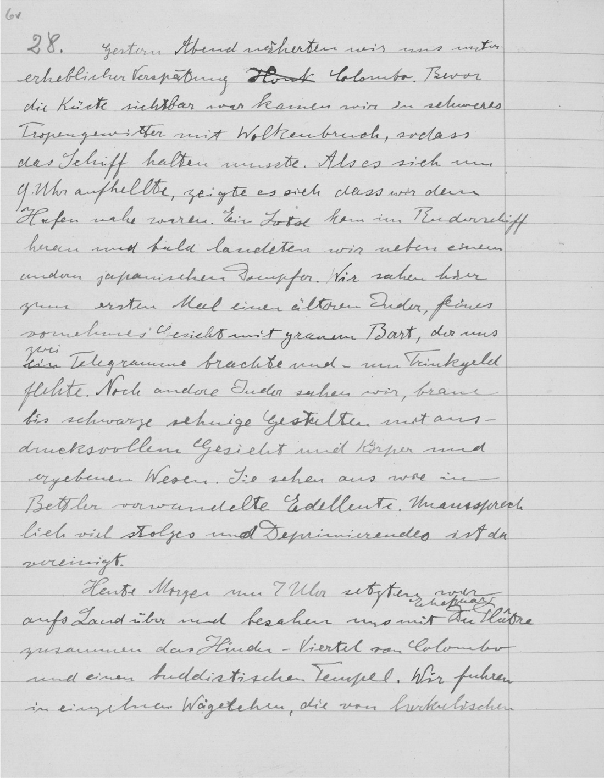 6v
28. Gestern Abend näherten wir uns unter
erheblicher Verspätung Colombo. Bevor
die Küste sichtbar war kamen wir in schweres
Tropengewitter mit Wolkenbruch, sodass
das Schiff halten musste. Als es sich um
9 Uhr aufhellte, zeigte es sich dass wir dem
Hafen nahe waren. Ein Lotse kam im Ruderschiff
heran und bald landeten wir neben einem
andern japanischen Dampfer. Wir sahen hier
zum ersten Mal einen älteren Inder, feines
vornehmes Gesicht mit grauem Bart, der uns
zwei
ein Telegramme brachte und – um Trinkgeld
flehte. Noch andere Inder sahen wir, braune
bis schwarze sehnige Gestalten mit aus-
drucksvollem Gesicht und Körper und
ergebenem Wesen. Sie sehen aus wie in
Bettler verwandelte Edelleute. Unaussprech
lich viel stolzes und Deprimierendes ist da
vereinigt.
Heute Morgen um 7 Uhr setzten wir
Ehepaar
aufs Land über und besahen uns mit Du Plâtre
zusammen das Hindu-Viertel von Colombo
und einen buddistischen Tempel. Wir fuhren
in einzelnen Wägelchen, die von herkulischen